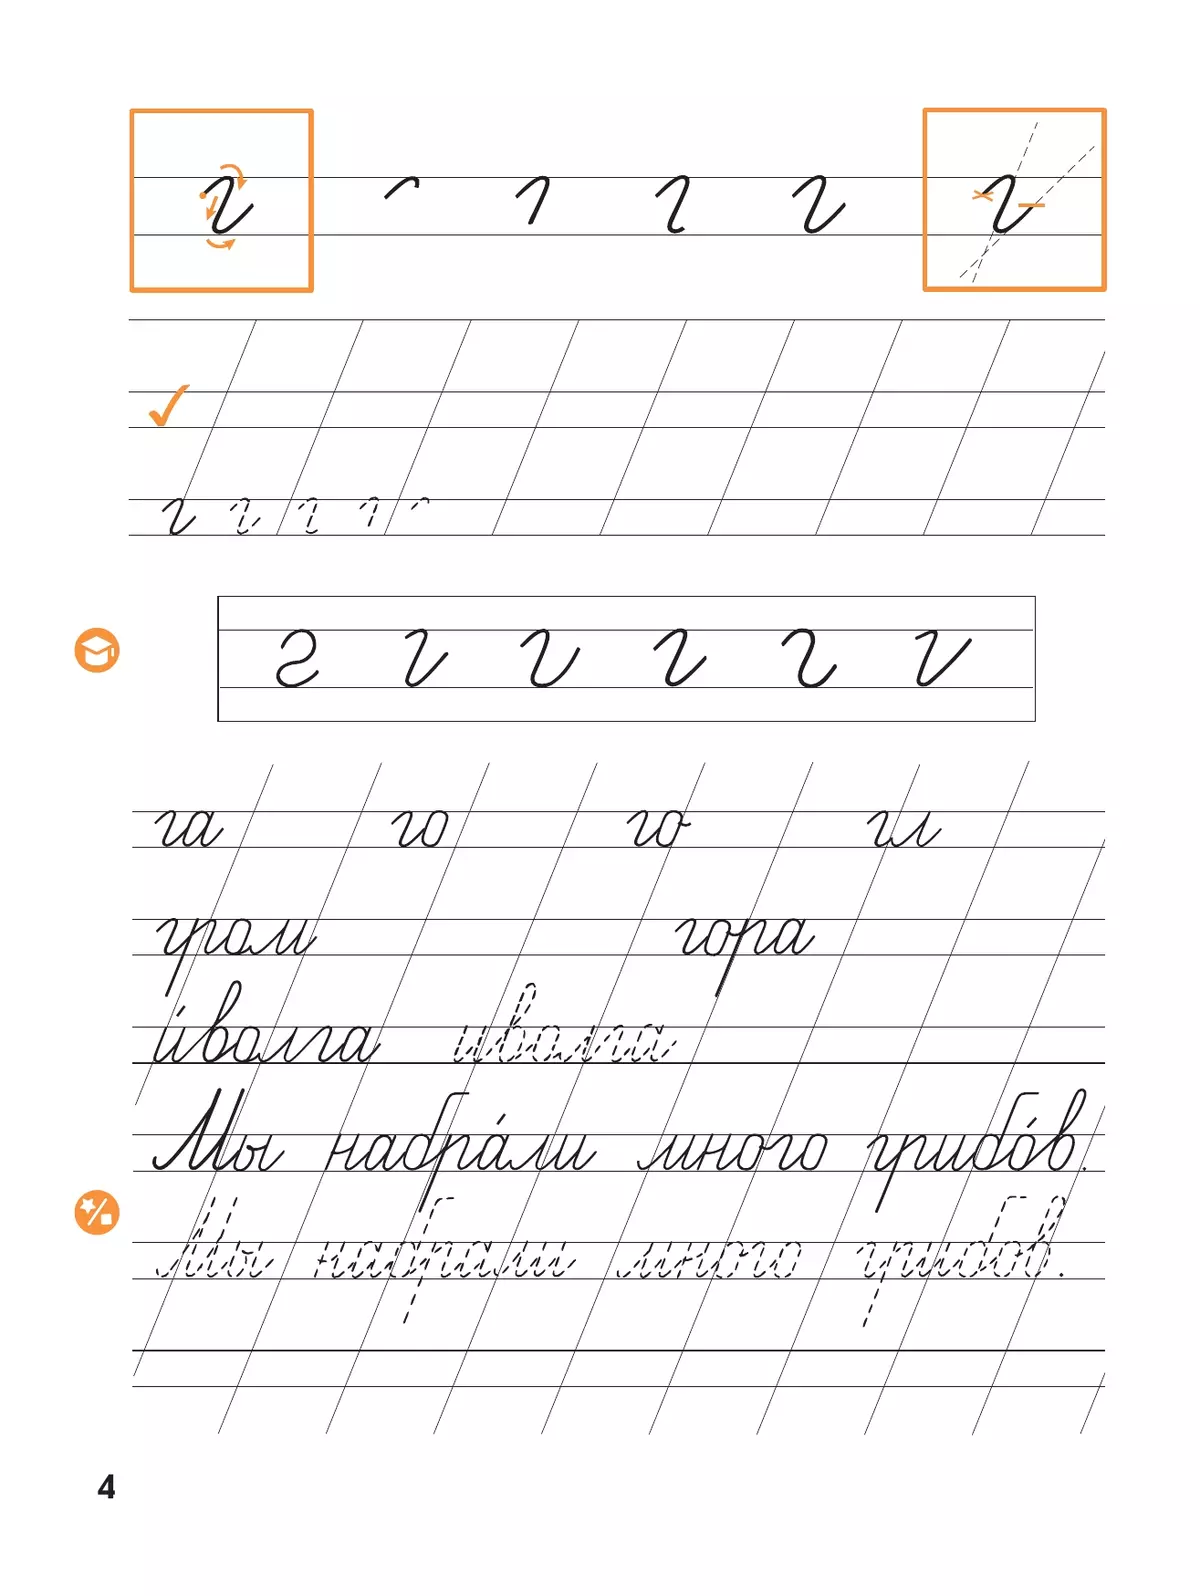 г г г г
г г г
г г г г г г
га го го гл
гром гора
и́волга иволга
Мы набра́ли много грибо́в.
Мы набрали много грибов.
4